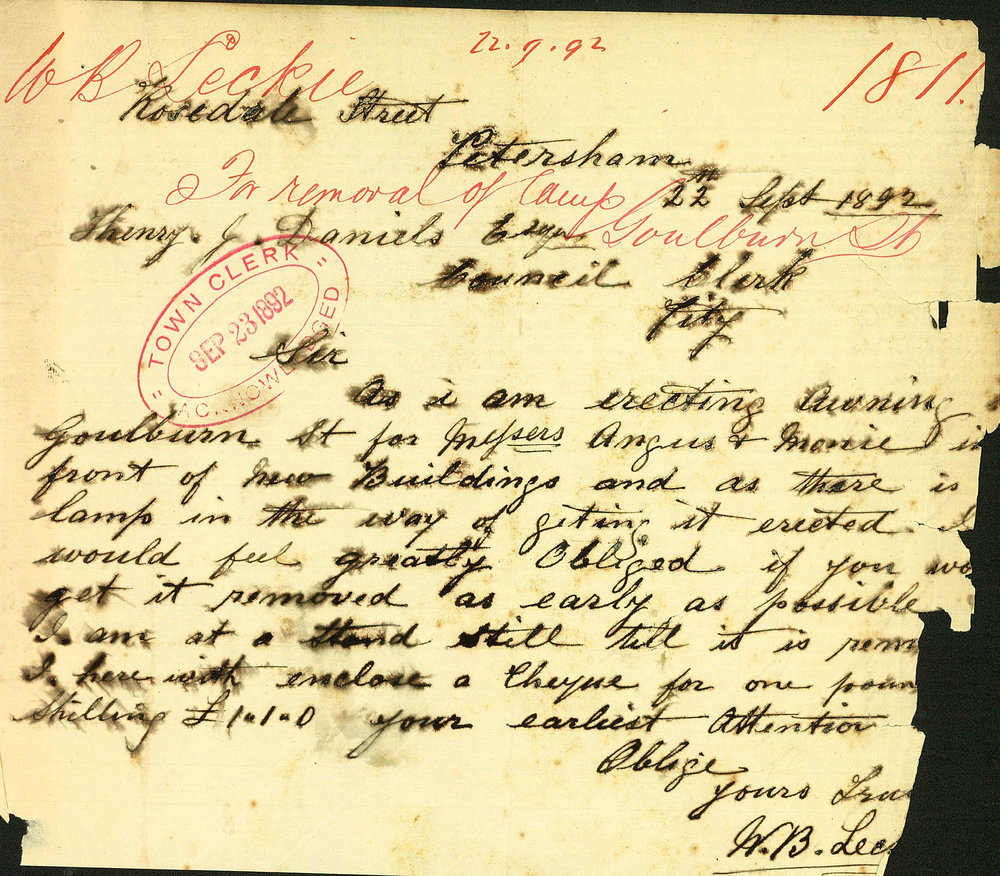 22.9.92
W B Leckie 1811.
Rosedale Street
Petersham
For removal of Lamp Goulburn St
22nd Sept 1892
Henry. J. Daniels Esqr
Council Clerk
City
TOWN CLERK
SEP 23 1892
ACKNOWLEDGED
Sir
As i am erecting Awning
Goulburn St for Messers Angus & Monie in
front of New Buildings and as there is
lamp in the way of geting it erected. I
would feel greatly Obliged if you wo
get it removed as early as possible
I am at a stand still till it is rem
I here with enclose a Cheque for one poun
shilling £1"1"0 your earliest Attention
Oblige
yours Tru
W.B. Lec